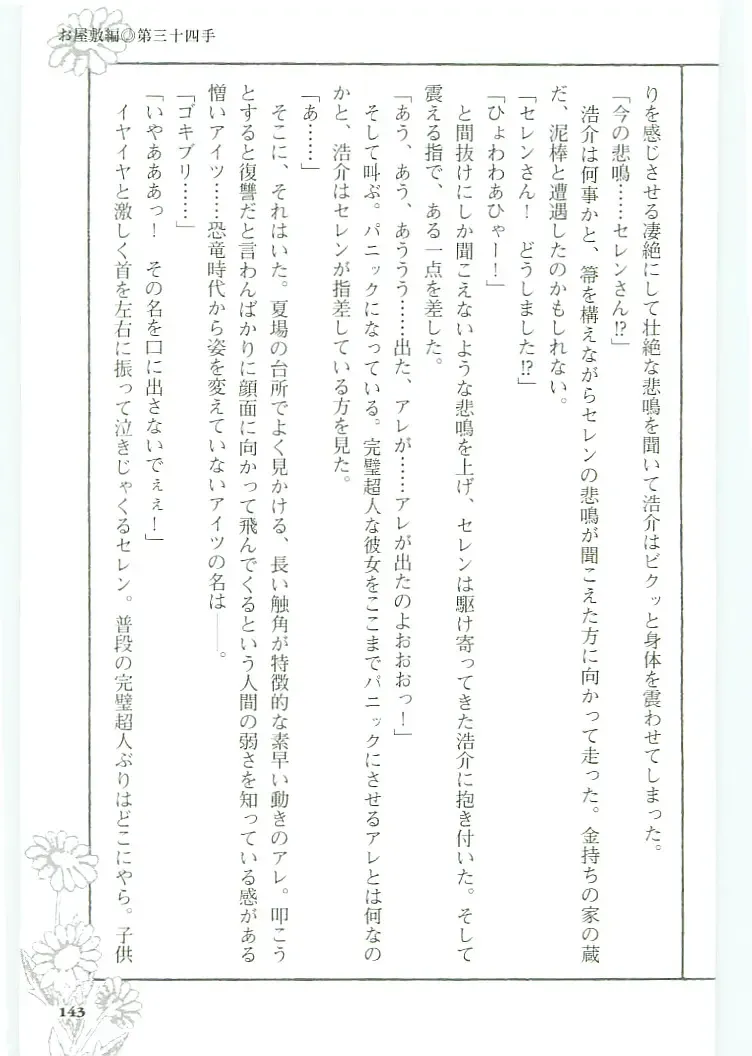 お屋敷編◎第三十四手
りを感じさせる凄絶にして壮絶な悲鳴を聞いて浩介はビクッと身体を震わせてしまった。
「今の悲鳴……セレンさん!?」
浩介は何事かと、箒を構えながらセレンの悲鳴が聞こえた方に向かって走った。金持ちの家の蔵
だ、泥棒と遭遇したのかもしれない。
「セレンさん！　どうしました!?」
「ひょわわあひゃー！」
と間抜けにしか聞こえないような悲鳴を上げ、セレンは駆け寄ってきた浩介に抱き付いた。そして
震える指で、ある一点を差した。
「あう、あう、あううう……出た、アレが……アレが出たのよおおおっ！」
そして叫ぶ。パニックになっている。完璧超人な彼女をここまでパニックにさせるアレとは何なの
かと、浩介はセレンが指差している方を見た。
「あ……」
そこに、それはいた。夏場の台所でよく見かける、長い触角が特徴的な素早い動きのアレ。叩こう
とすると復讐だと言わんばかりに顔面に向かって飛んでくるという人間の弱さを知っている感がある
憎いアイツ……恐竜時代から姿を変えていないアイツの名は――。
「ゴキブリ……」
「いやあああっ！　その名を口に出さないでぇぇ！」
イヤイヤと激しく首を左右に振って泣きじゃくるセレン。普段の完璧超人ぶりはどこにやら。子供
143